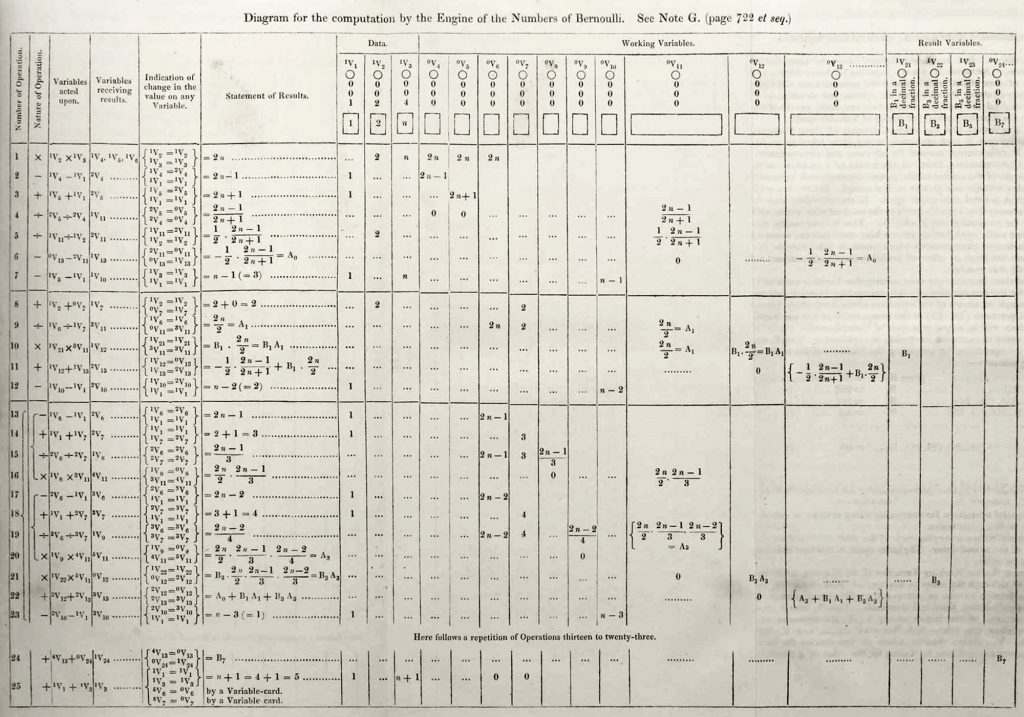 Diagram for the computation by the Engine of the Numbers of Bernoulli. See Note G. (page 722 et seq.)
Number of Operation. Nature of Operation. Variables acted upon. Variables receiving results. Indication of change in the value on any Variable. Statement of Results. Data. Working Variables. Result Variables.
¹V₁ ¹V₂ ¹V₃ ⁰V₄ ⁰V₅ ⁰V₆ ⁰V₇ ⁰V₈ ⁰V₉ ⁰V₁₀ ⁰V₁₁ ⁰V₁₂ ⁰V₁₃ ............ ¹V₂₁ ¹V₂₂ ¹V₂₃ ⁰V₂₄...
○ ○ ○ ○ ○ ○ ○ ○ ○ ○ ○ ○ ○ ○ ○ ○ ○
0 0 0 0 0 0 0 0 0 0 0 0 0 B₁ in a decimal fraction. B₃ in a decimal fraction. B₅ in a decimal fraction. 0
0 0 0 0 0 0 0 0 0 0 0 0 0 0
1 2 4 0 0 0 0 0 0 0 0 0 0 0
1 2 n B₁ B₃ B₅ B₇
1 × ¹V₂ × ¹V₃ ¹V₄, ¹V₅, ¹V₆ { ¹V₂ = ¹V₂ ¹V₃ = ¹V₃ } = 2n ... 2 n 2n 2n 2n
2 − ¹V₄ − ¹V₁ ²V₄ { ¹V₄ = ²V₄ ¹V₁ = ¹V₁ } = 2n − 1 1 ... ... 2n − 1
3 + ¹V₅ + ¹V₁ ²V₅ { ¹V₅ = ²V₅ ¹V₁ = ¹V₁ } = 2n + 1 1 ... ... ... 2n+1
4 ÷ ²V₅ ÷ ²V₄ ¹V₁₁ { ²V₅ = ⁰V₅ ²V₄ = ⁰V₄ } = (2n − 1)/(2n + 1) ... ... ... 0 0 ... ... ... ... ... (2n − 1)/(2n + 1)
5 ÷ ¹V₁₁ ÷ ¹V₂ ²V₁₁ { ¹V₁₁ = ²V₁₁ ¹V₂ = ¹V₂ } = 1/2 · (2n − 1)/(2n + 1) ... 2 ... ... ... ... ... ... ... ... 1/2 · (2n − 1)/(2n + 1)
6 − ⁰V₁₃ − ²V₁₁ ¹V₁₃ { ²V₁₁ = ⁰V₁₁ ⁰V₁₃ = ¹V₁₃ } = − 1/2 · (2n − 1)/(2n + 1) = A₀ ... ... ... ... ... ... ... ... ... ... 0 ........ − 1/2 · (2n − 1)/(2n + 1) = A₀
7 − ¹V₃ − ¹V₁ ¹V₁₀ { ¹V₃ = ¹V₃ ¹V₁ = ¹V₁ } = n − 1 (= 3) 1 ... n ... ... ... ... ... ... n − 1
8 + ¹V₂ + ⁰V₇ ¹V₇ { ¹V₂ = ¹V₂ ⁰V₇ = ¹V₇ } = 2 + 0 = 2 ... 2 ... ... ... ... 2
9 ÷ ¹V₆ ÷ ¹V₇ ³V₁₁ { ¹V₆ = ¹V₆ ⁰V₁₁ = ³V₁₁ } = 2n/2 = A₁ ... ... ... ... ... 2n 2 ... ... ... 2n/2 = A₁
10 × ¹V₂₁ × ³V₁₁ ¹V₁₂ { ¹V₂₁ = ¹V₂₁ ³V₁₁ = ³V₁₁ } = B₁ · 2n/2 = B₁ A₁ ... ... ... ... ... ... ... ... ... ... 2n/2 = A₁ B₁ · 2n/2 = B₁ A₁ ......... B₁
11 + ¹V₁₂ + ¹V₁₃ ²V₁₃ { ¹V₁₂ = ⁰V₁₂ ¹V₁₃ = ²V₁₃ } = − 1/2 · (2n − 1)/(2n + 1) + B₁ · 2n/2 ... ... ... ... ... ... ... ... ... ... ........ 0 { − 1/2 · (2n − 1)/(2n + 1) + B₁ · 2n/2 }
12 − ¹V₁₀ − ¹V₁ ²V₁₀ { ¹V₁₀ = ²V₁₀ ¹V₁ = ¹V₁ } = n − 2 (= 2) 1 ... ... ... ... ... ... ... ... n − 2
13 − ¹V₆ − ¹V₁ ²V₆ { ¹V₆ = ²V₆ ¹V₁ = ¹V₁ } = 2n − 1 1 ... ... ... ... 2n − 1
14 + ¹V₁ + ¹V₇ ²V₇ { ¹V₁ = ¹V₁ ¹V₇ = ²V₇ } = 2 + 1 = 3 1 ... ... ... ... ... 3
15 ÷ ²V₆ ÷ ²V₇ ¹V₈ { ²V₆ = ²V₆ ²V₇ = ²V₇ } = (2n − 1)/3 ... ... ... ... ... 2n − 1 3 (2n − 1)/3
16 × ¹V₈ × ³V₁₁ ⁴V₁₁ { ¹V₈ = ⁰V₈ ³V₁₁ = ⁴V₁₁ } = 2n/2 · (2n − 1)/3 ... ... ... ... ... ... ... 0 ... ... 2n/2 · (2n − 1)/3
17 − ²V₆ − ¹V₁ ³V₆ { ²V₆ = ³V₆ ¹V₁ = ¹V₁ } = 2n − 2 1 ... ... ... ... 2n − 2
18 + ¹V₁ + ²V₇ ³V₇ { ²V₇ = ³V₇ ¹V₁ = ¹V₁ } = 3 + 1 = 4 1 ... ... ... ... ... 4
19 ÷ ³V₆ ÷ ³V₇ ¹V₉ { ³V₆ = ³V₆ ³V₇ = ³V₇ } = (2n − 2)/4 ... ... ... ... ... 2n − 2 4 ... (2n − 2)/4 ... { 2n/2 · (2n − 1)/3 · (2n − 2)/3 } = A₃
20 × ¹V₉ × ⁴V₁₁ ⁵V₁₁ { ¹V₉ = ⁰V₉ ⁴V₁₁ = ⁵V₁₁ } = 2n/2 · (2n − 1)/3 · (2n − 2)/4 = A₃ ... ... ... ... ... ... ... ... 0
21 × ¹V₂₂ × ⁵V₁₁ ⁰V₁₂ { ¹V₂₂ = ¹V₂₂ ⁰V₁₂ = ²V₁₂ } = B₃ · 2n/2 · (2n − 1)/3 · (2n − 2)/3 = B₃ A₃ ... ... ... ... ... ... ... ... ... ... 0 B₃ A₃ ........ ...... B₃
22 + ²V₁₂ + ²V₁₃ ³V₁₃ { ²V₁₂ = ⁰V₁₂ ²V₁₃ = ³V₁₃ } = A₀ + B₁ A₁ + B₃ A₃ ... ... ... ... ... ... ... ... ... ... ........ 0 { A₃ + B₁ A₁ + B₃ A₃ }
23 − ²V₁₀ − ¹V₁ ³V₁₀ { ²V₁₀ = ³V₁₀ ¹V₁ = ¹V₁ } = n − 3 (= 1) 1 ... ... ... ... ... ... ... ... n − 3
Here follows a repetition of Operations thirteen to twenty-three.
24 + ⁴V₁₃ + ⁰V₂₄ ¹V₂₄ { ⁴V₁₃ = ⁰V₁₃ ⁰V₂₄ = ¹V₂₄ } = B₇ ... ... ... ... ... ... ... ... ... ... ........ ........ ........ ... ... ... B₇
25 + ¹V₁ + ¹V₃ ¹V₃ { ¹V₁ = ¹V₁ ¹V₃ = ¹V₃ ⁵V₆ = ⁰V₆ ⁵V₇ = ⁰V₇ } = n + 1 = 4 + 1 = 5 1 ... n + 1 ... ... 0 0
by a Variable-card.
by a Variable card.